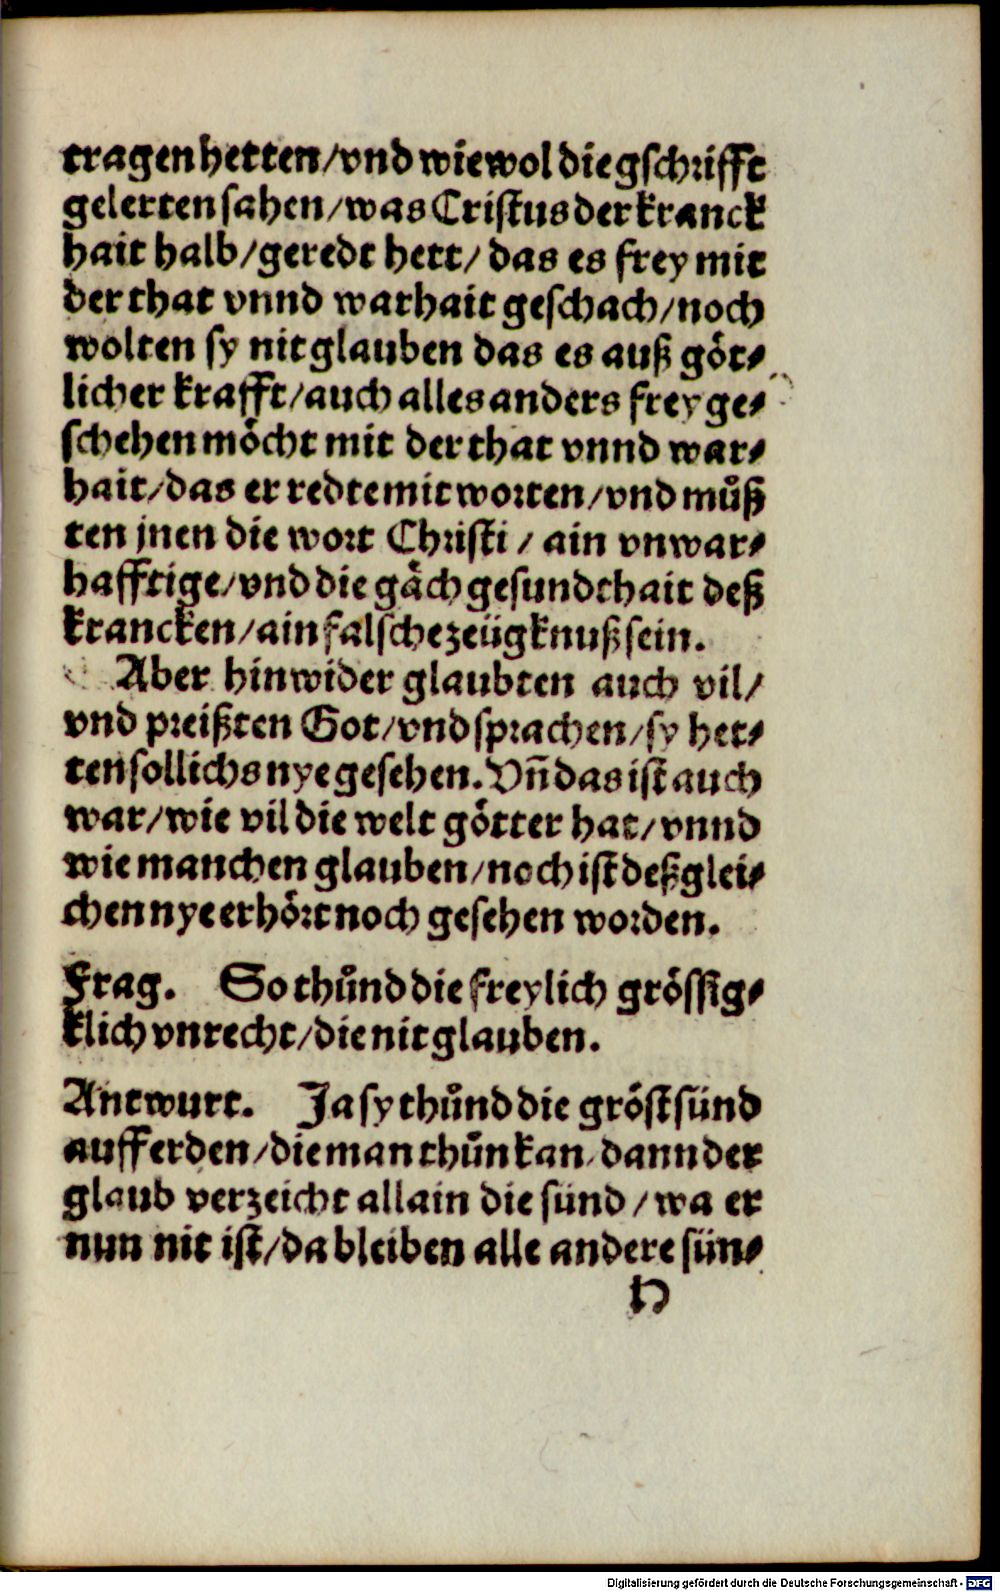 tragen hetten/vnd wiewol die gschrifft
gelerten sahen/was Cristus der kranck
hait halb/geredt hett/ das es frey mit
der that vnnd warhait geschach/noch
wolten sy nit glauben das es auß göt⸗
licher krafft/auch alles anders frey ge⸗
schehen möcht mit der that vnnd war⸗
hait/das er redte mit worten/vnd můß
ten jnen die wort Christi / ain vnwar⸗
hafftige/vnd die gäch gesundthait deß
krancken/ain falsche zeügknuß sein.
Aber hinwider glaubten auch vil/
vnd preißten Got/vnd sprachen/sy het⸗
ten sollichs nye gesehen. Vñ das ist auch
war/wie vil die welt götter hat/vnnd
wie manchen glauben/noch ist deßglei⸗
chen nye erhört noch gesehen worden.
Frag. So thůnd die freylich grössig⸗
klich vnrecht/die nit glauben.
Antwurt. Ja sy thůnd die gröst sünd
auff erden/die man thůn kan/dann der
glaub verzeicht allain die sünd/wa er
nun nit ist/da bleiben alle andere sün⸗
H
Digitalisierung gefördert durch die Deutsche Forschungsgemeinschaft - DFG